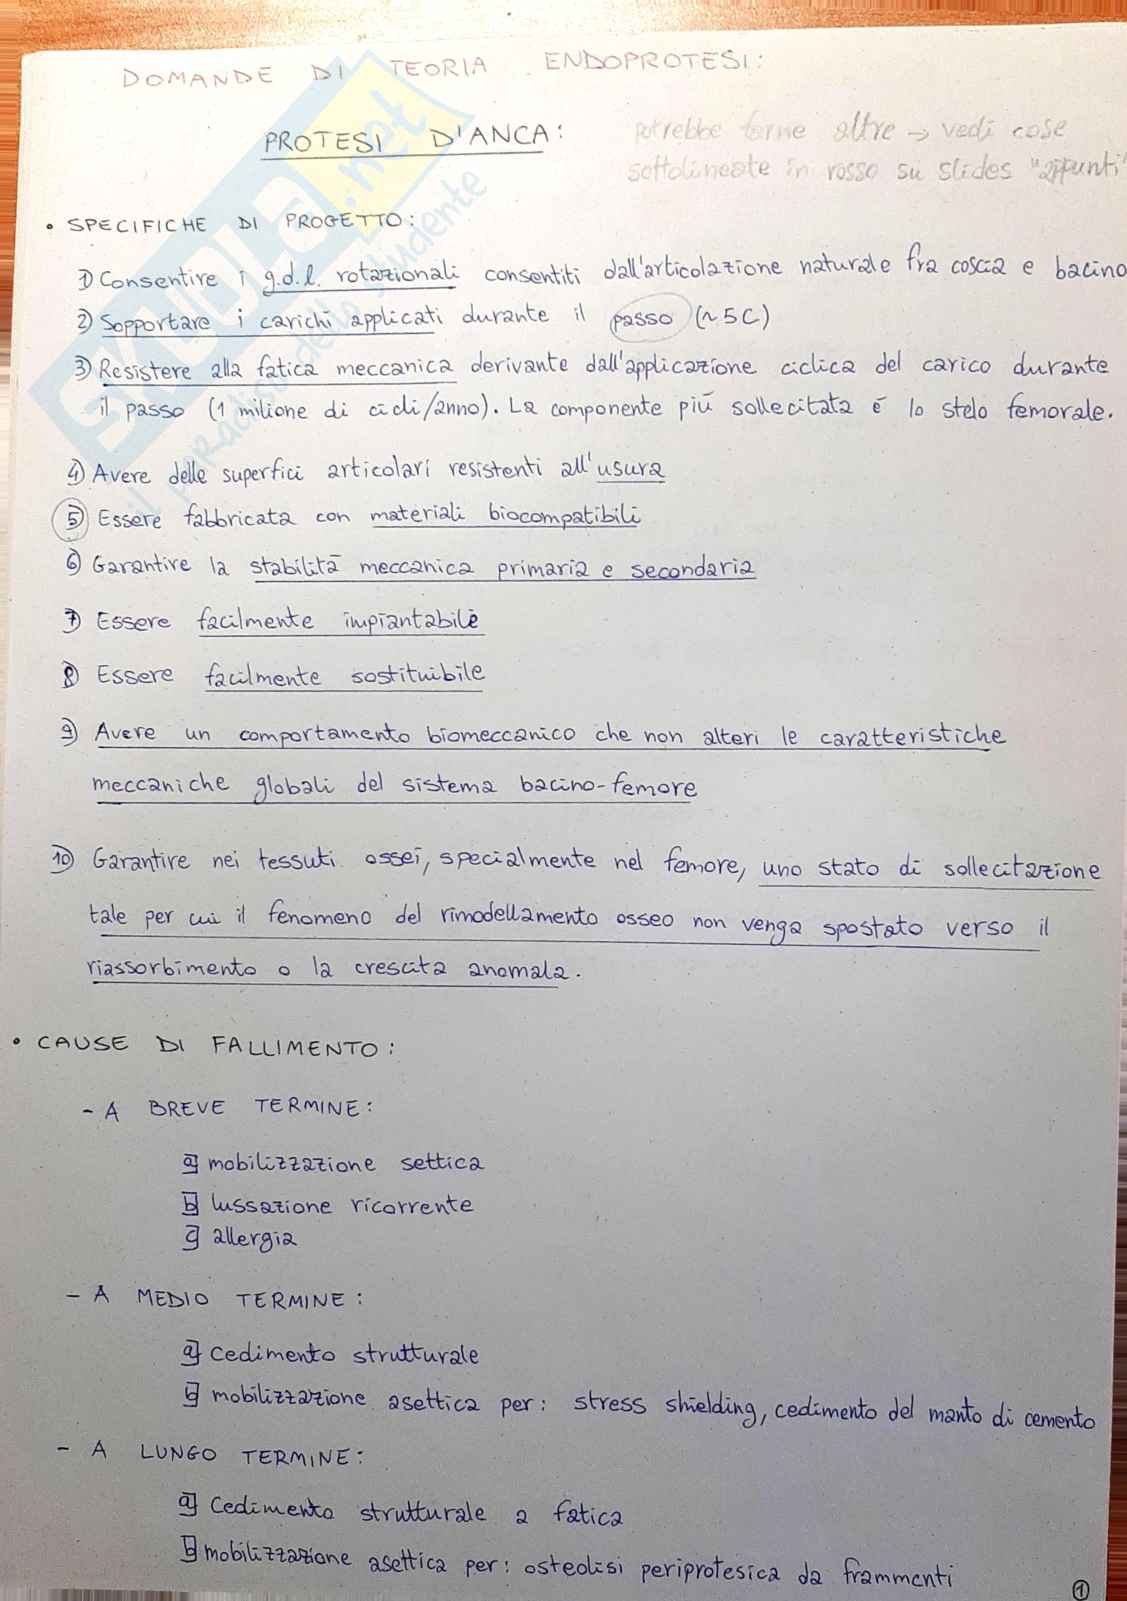 DOMANDE DI TEORIA ENDOPROTESI:
PROTESI D'ANCA:
potrebbe farne altre → vedi cose
sottolineate in rosso su slides "appunti"
• SPECIFICHE DI PROGETTO:
1) Consentire i g.d.l. rotazionali consentiti dall'articolazione naturale fra coscia e bacino
2) Sopportare i carichi applicati durante il passo (~5C)
3) Resistere alla fatica meccanica derivante dall'applicazione ciclica del carico durante
il passo (1 milione di cicli/anno). La componente più sollecitata é lo stelo femorale.
4) Avere delle superfici articolari resistenti all'usura
5) Essere fabbricata con materiali biocompatibili
6) Garantire la stabilità meccanica primaria e secondaria
7) Essere facilmente impiantabile
8) Essere facilmente sostituibile
9) Avere un comportamento biomeccanico che non alteri le caratteristiche
meccaniche globali del sistema bacino-femore
10) Garantire nei tessuti ossei, specialmente nel femore, uno stato di sollecitazione
tale per cui il fenomeno del rimodellamento osseo non venga spostato verso il
riassorbimento o la crescita anomala.
• CAUSE DI FALLIMENTO:
- A BREVE TERMINE:
a) mobilizzazione settica
b) lussazione ricorrente
c) allergia
- A MEDIO TERMINE:
a) cedimento strutturale
b) mobilizzazione asettica per: stress shielding, cedimento del manto di cemento
- A LUNGO TERMINE:
a) Cedimento strutturale a fatica
b) mobilizzazione asettica per: osteolisi periprotesica da frammenti
1
SKUOLA.net
il paradiso dello studente